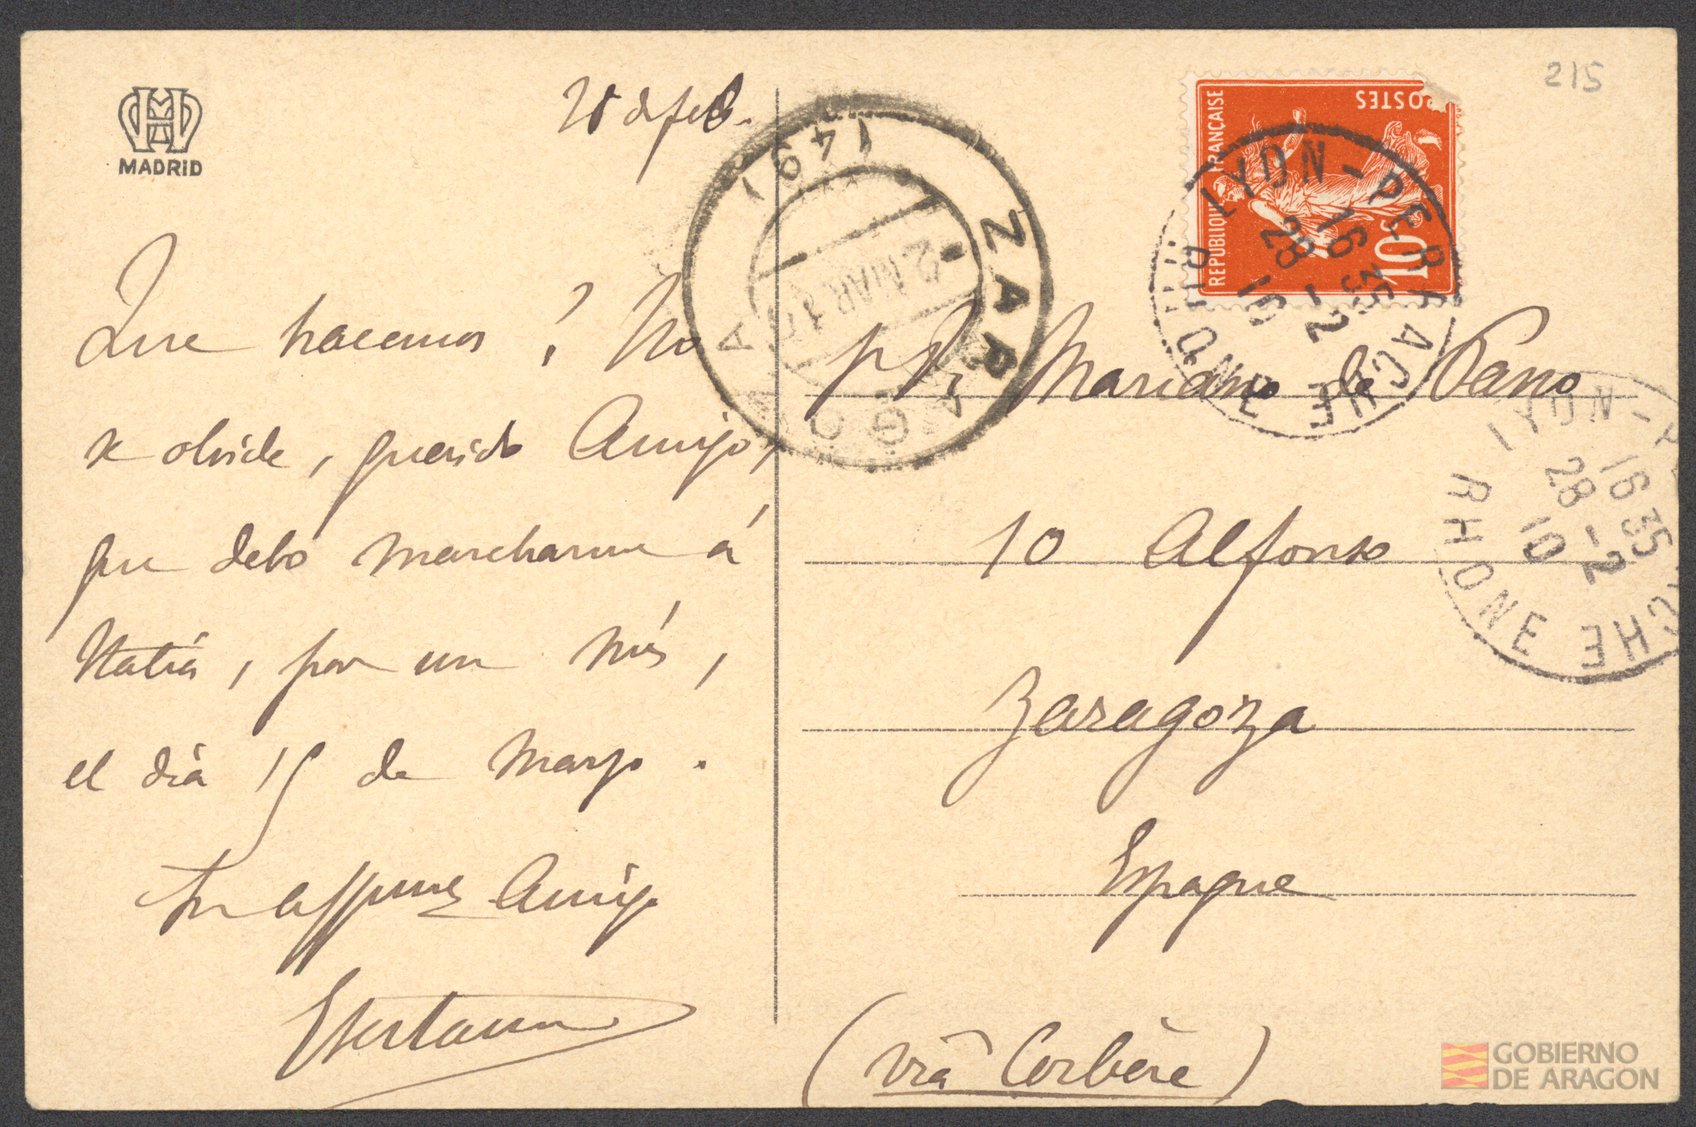 MADRID
28 de feb.
Que hacemos? No
se olvide, querido Amigo,
que debo marcharme á
Italiá, por un més,
el dia 15 de Marzo.
Amigo
215
REPUBLIQUE FRANÇAISE
POSTES
10
LYON-PERRACHE
16 35
28 - 2
10
RHONE
LYON-PERRACHE
16 35
28 - 2
10
RHONE
ZARAGOZA
2 MAR 10
Mariano de Pano
10 Alfonso
Zaragoza
Espagne
(viâ Cerbère)
GOBIERNO
DE ARAGON